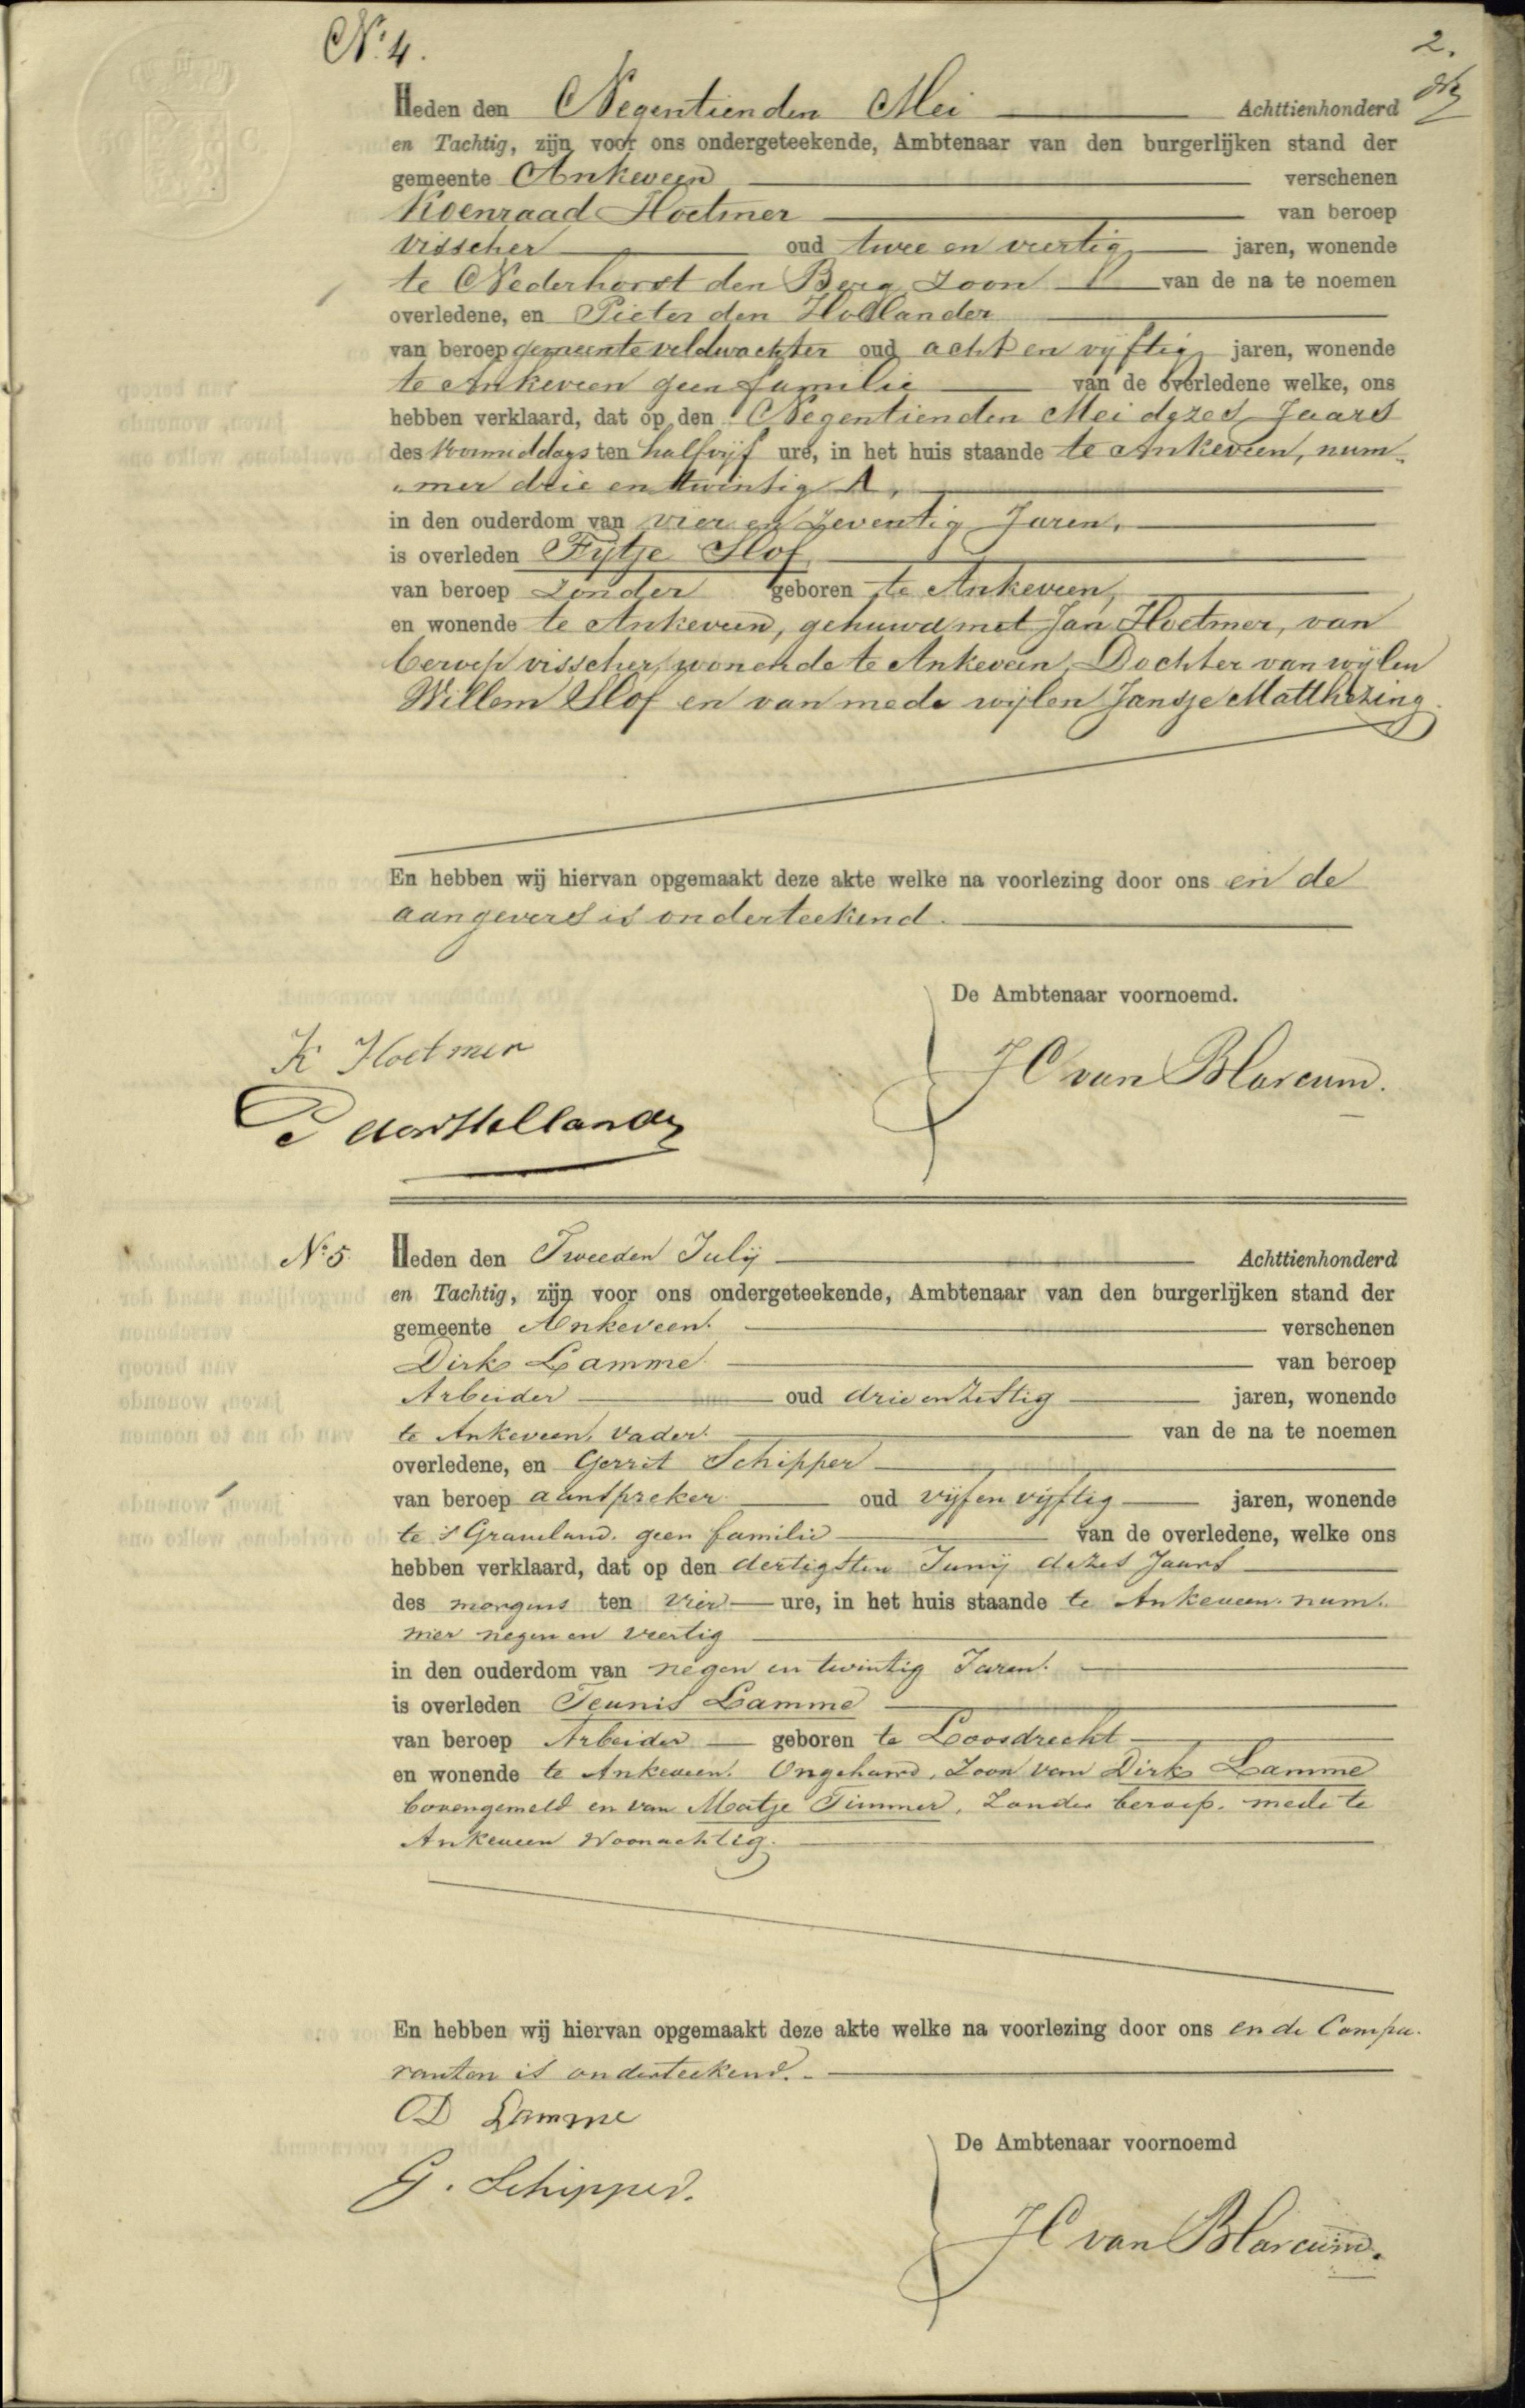 2.
No. 4.
Heden den Negentienden Mei Achttienhonderd
en Tachtig, zijn voor ons ondergeteekende, Ambtenaar van den burgerlijken stand der
gemeente Ankeveen verschenen
Koenraad Hoetmer van beroep
visscher oud twee en veertig jaren, wonende
te Nederhorst den Berg Zoon van de na te noemen
overledene, en Pieter den Hollander
van beroep gemeente veldwachter oud acht en vyftig jaren, wonende
te Ankeveen geen familie van de overledene welke, ons
hebben verklaard, dat op den Negentienden Mei dezes Jaars
des Voormiddags ten halfvijf ure, in het huis staande te Ankeveen, num-
mer drie en twintig A,
in den ouderdom van vier en zeventig Jaren,
is overleden Fijtje Slof
van beroep Zonder geboren te Ankeveen,
en wonende te Ankeveen, gehuwd met Jan Hoetmer, van
beroep visscher, wonende te Ankeveen, Dochter van wijlen
Willem Slof en van mede wijlen Jansje Matthezing.
En hebben wij hiervan opgemaakt deze akte welke na voorlezing door ons en de
aangevers is onderteekend.
De Ambtenaar voornoemd.
K Hoetmer
JC van Blarcum.
P den Hollander
No. 5. Heden den Tweeden Julij Achttienhonderd
en Tachtig, zijn voor ons ondergeteekende, Ambtenaar van den burgerlijken stand der
gemeente Ankeveen verschenen
Dirk Lamme van beroep
Arbeider oud drie en zestig jaren, wonende
te Ankeveen, Vader van de na te noemen
overledene, en Gerrit Schipper
van beroep aanspreker oud vijf en vijftig jaren, wonende
te 's Graveland. geen familie van de overledene, welke ons
hebben verklaard, dat op den dertigsten Junij dezes Jaars
des morgens ten Vier ure, in het huis staande te Ankeveen. num-
mer negen en veertig
in den ouderdom van negen en twintig Jaren.
is overleden Teunis Lamme
van beroep Arbeider geboren te Loosdrecht
en wonende te Ankeveen. Ongehuwd, Zoon van Dirk Lamme
bovengemeld en van Maatje Timmer, Zonder beroep. mede te
Ankeveen Woonachtig.
En hebben wij hiervan opgemaakt deze akte welke na voorlezing door ons en de Compa-
ranten is onderteekend.
D Lamme
De Ambtenaar voornoemd
G. Schipper.
JC van Blarcum.